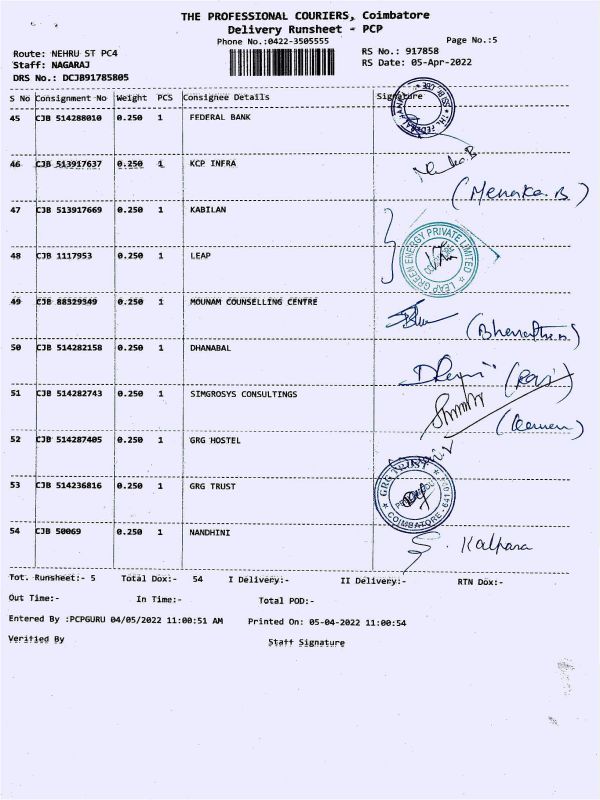 THE PROFESSIONAL COURIERS, Coimbatore
Delivery Runsheet - PCP
Phone No.:0422-3505555
Page No.:5
Route: NEHRU ST PC4
RS No.: 917858
Staff: NAGARAJ
RS Date: 05-Apr-2022
DRS No.: DCJB91785805
S No Consignment No Weight PCS Consignee Details Signature
45 CJB 514288010 0.250 1 FEDERAL BANK
46 CJB 513917637 0.250 1 KCP INFRA
(Menaka.B)
47 CJB 513917669 0.250 1 KABILAN
48 CJB 1117953 0.250 1 LEAP
LEAP GREEN ENERGY PRIVATE LIMITED
49 CJB 88329349 0.250 1 MOUNAM COUNSELLING CENTRE
50 CJB 514282158 0.250 1 DHANABAL
51 CJB 514282743 0.250 1 SIMGROSYS CONSULTINGS
52 CJB 514287405 0.250 1 GRG HOSTEL
53 CJB 514236816 0.250 1 GRG TRUST
GRG TRUST
COIMBATORE
54 CJB 50069 0.250 1 NANDHINI
Kalpana
Tot. Runsheet:- 5 Total Dox:- 54 I Delivery:- II Delivery:- RTN Dox:-
Out Time:- In Time:- Total POD:-
Entered By :PCPGURU 04/05/2022 11:00:51 AM Printed On: 05-04-2022 11:00:54
Verified By Staff Signature